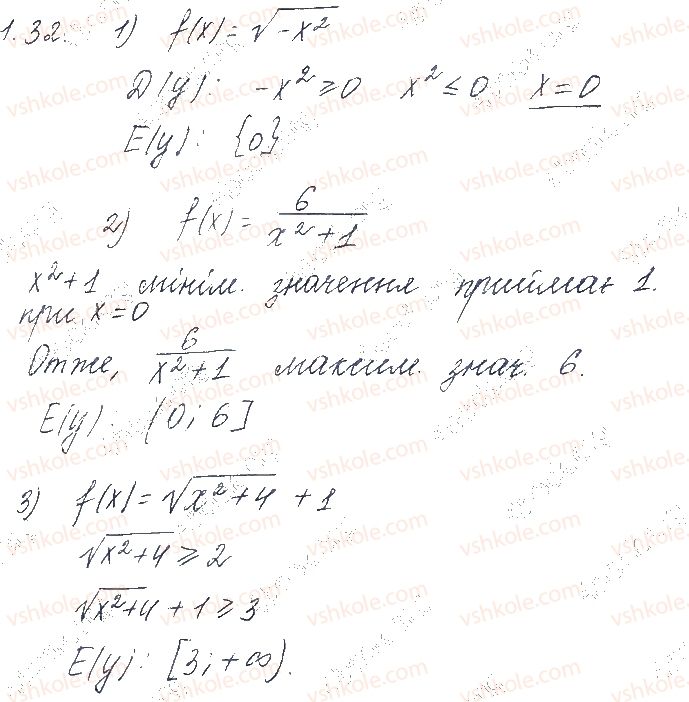 1.32. 1) f(x) = √(-x²)
D(y): -x² ≥ 0 x² ≤ 0 x = 0
E(y): {0}
2) f(x) = 6/(x² + 1)
x² + 1 мінім. значення приймає 1.
при x = 0
Отже, 6/(x² + 1) максим. знач. 6.
E(y): (0; 6]
3) f(x) = √(x² + 4) + 1
√(x² + 4) ≥ 2
√(x² + 4) + 1 ≥ 3
E(y): [3; +∞).
vshkole.com